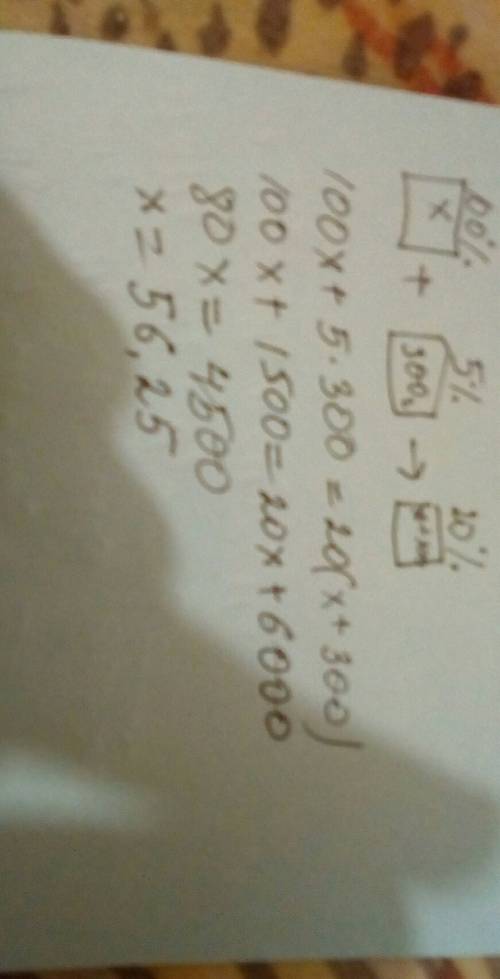 100% 5% 20%
x + 300 → x+300
100x + 5·300 = 20(x+300)
100x + 1500 = 20x + 6000
80x = 4500
x = 56,25